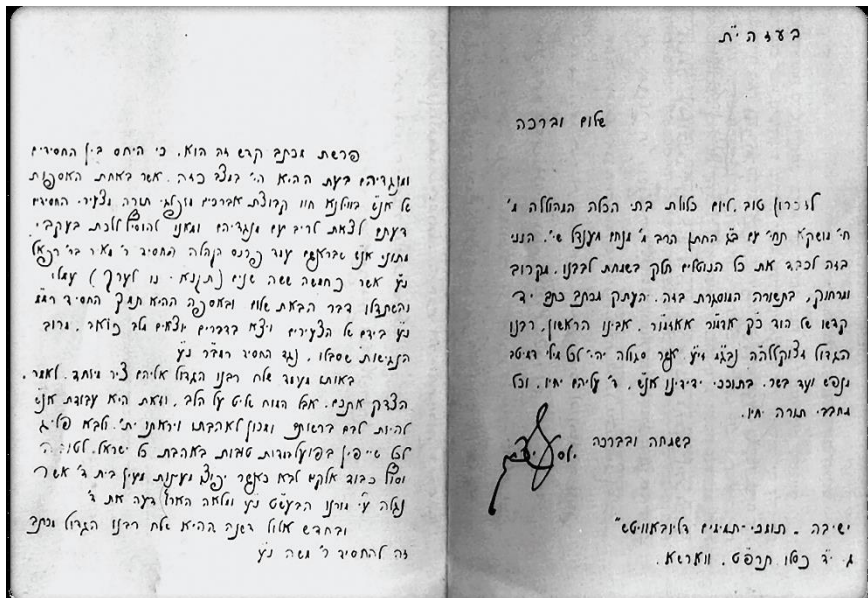 בעזהי״ת
שלום וברכה
לזכרון טוב. ליום כלולת בתי הכלה המהוללה מ׳
חי׳ מושקא תחי׳ עם ב״ג החתן הרב מ׳ מנחם מענדל שי׳. הנני
בזה לכבד את כל הנוטלים חלק בשמחת לבבנו. מקרוב
ומרחוק, בתשורה המוסגרת בזה. העתק מכתב כתב יד
קדשו של הוד כ״ק אדמו״ר אאזמו״ר. אבינו הראשון. רבנו
הגדול זצוקללה״ה נבג״מ זי״ע אשר סגולה יהי׳ לכל מילי דמיטב
מנפש ועד בשר. בתוככי ידידינו אנ״ש. ד׳ עליהם יחיו. וכל
מחבבי תורה יחיו.
בשמחה ובברכה
יוסף יצחק
ישיבה - תומכי-תמימים דליובאוויטש״
ג. י״ד כסלו תרפ״ט. ווארשא.
פרשת מכתב קדש זה הוא. כי היחס בין החסידים
ומנגדיהם בעת ההיא הי׳ במצב כזה. אשר באחת האספות
של אנ״ש בווילנא חוו קבוצת אברכים מופלגי תורה מצעירי החסידים
דעתם לצאת לריב עם מנגדיהם ומאנו להוסיף ללכת בעקבי
מתוני אנ״ש שבראשם עמד פרנס הקהלה החסיד ר׳ מאיר בר׳ רפאל
נ״ע אשר כחמשה ששה שנים (תקנא - נו לערך) עמלו
והשתדלו דבר הבאת שלום ובאספה ההיא תמך החסיד רממ״ב
נ״ע בידם של הצעירים ויצא בדברים יוצאים מלב כואב. מרוב
הנגישות שסבלו. נגד החסיד רמב״ר נ״ע
באותו מעמד שלח רבנו הגדול אליהם ציר מיוחד. לאמר.
הצדק אתכם. אבל המוח שליט על הלב. וזאת היא עבודת אנ״ש
להיות לבם ברשותם ומכוון לאהבתו ויראתו ית׳. ולבא פליג
לכל שייפין בפועל ובמדות טובות באהבת כל ישראל. לטוב ה׳
וסוף כבוד אלקים לבא כאשר יפוצו מעינות מעין בית ד׳ אשר
נגלה ע״י מורנו הבעש״ט נ״ע ומלאה הארץ דעה את ד׳
ובחדש אלול דשנה ההיא שלח רבנו הגדול מכתב
זה להחסיד ר׳ משה נ״ע